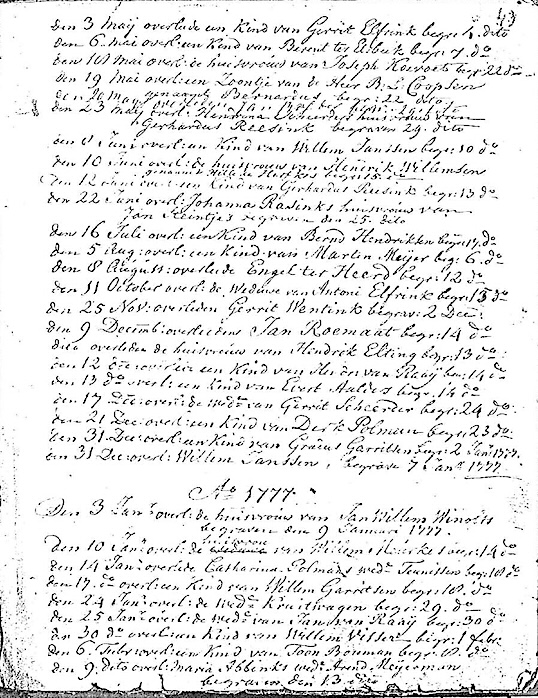 43
den 3 Maij overlede een Kind van Gerrit Elfrink begr: 4 dito
den 6 Mai overl: een Kind van Berent te begr: 7 do
den 10 Mai overl: de huisvrouw van Joseph begr: 22 do
den 19 Mai overl: een Zoontje van de Heer B: L: Coopsen
genaamt Bernardus begr: 22 dito
den 20 Maij
den 23 Maij overl: huisvrouw van
Gerhardus Reesink begraven 29 dito
den 8 Juni overl: een Kind van Willem Janssen begr: 10 do
den 10 Juni overl: de huisvrouw van Hendrik Willemsen
genaamt
den 12 Juni overl: een Kind van Gerhardus Reesink begr: 13 do
den 22 Juni overl: Johanna Rasinks huisvrouw van
Jan Reintjes begraven den 25 dito
den 16 Juli overl: een Kind van Bernd Hendriksen begr: do
den 5 Aug: overl: een Kind van Marten Meijer beg: 6 do
den 8 August: overlede Engel ter Heerd begr: 12 do
den 11 October overl: de Weduwe van Antoni Elfrink begr: 15 do
den 25 Nov: overleden Gerrit Wentink begrav: 2 Dec:
den 9 Decemb: overledens Jan Roemaat begr: 14 do
dito overleden de huisvrouw van Hendrik Elting begr: 13 do:
den 12 een Kind van van Raaij ber: 14 do
den 13 do overl: een Kind van Evert Aalders begr: 14 do
den 17 Dec: overl: de wedw van Gerrit Scheerder begr: 24 do
den 21 Dec: overl: een Kind van Derk Polman begr: 23 do
den 31 Dec: overl: een Kind van Garritsen begr: 2 Jan: 1777.
den 31 Dec: overl: Willem Janssen, begrave 7 Jan: 1777.
Ao 1777.
Den 3 Jan: overl: de huisvrouw van Jan Willem
begraven den 9 Januari 1777.
huisvrou
den 10 Jan: overl: de van Willem begr: 14 do
den 14 Jan: overlede Catharina Polmans wedw Teunissen beg: 18 do
den 17 do overl: een Kind van Willem Garritsen begr: 18 do
den 24 Jan: overl: de wedw Kruitwagen begr: 29 do
den 25 Jan: overl: de wedw van Jan van Raaij begr: 30 do
den 30 do overl: een Kind van Willem Visser begr: 1 febr.
den 6 Febr: overl: een Kind van Toon Bouman begr: 8 do
den 9 dito overl: Maria Abbinks wedw Arend
begraven den 13 dito